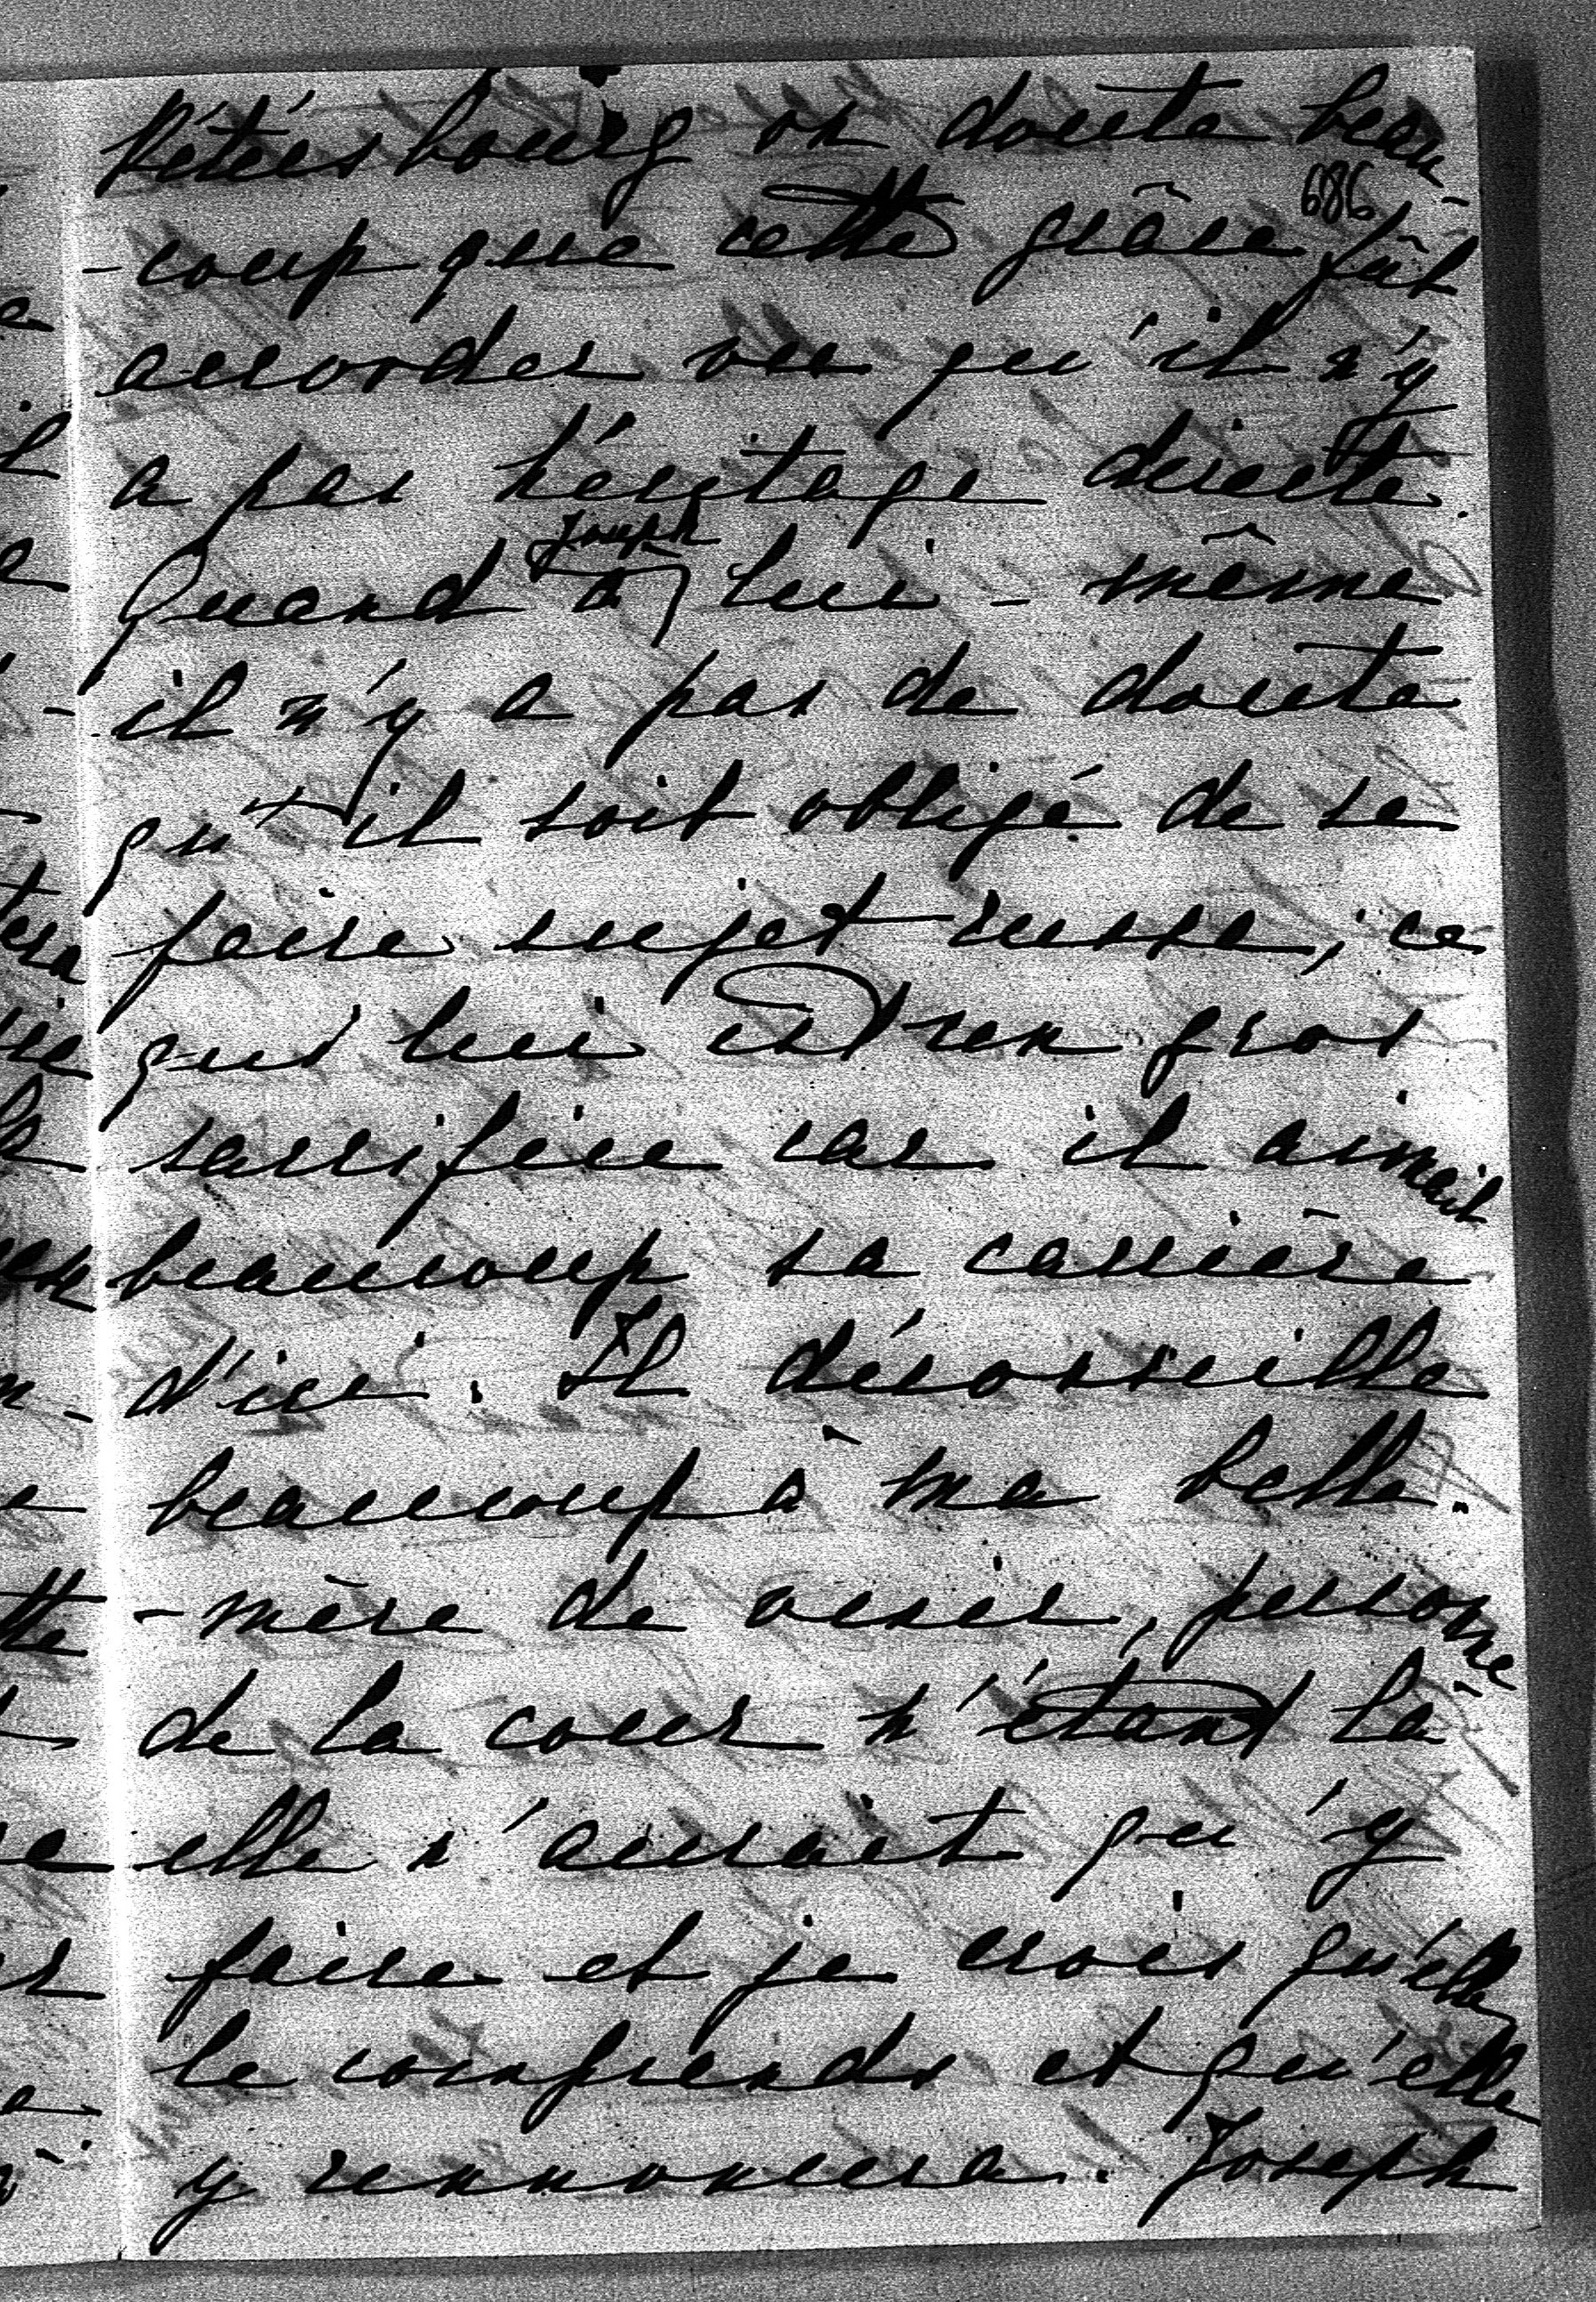 Pétersbourg on doute beau-
686
-coup que cette grâce fût
accordée vu qu'il n'y
a pas héritage directe.
Joseph
Quand à lui-même
il n'y a pas de doute
qu'il soit obligé de se
faire sujet russe, ce
qui lui est un gros
sacrifice car il aimait
beaucoup sa carrière
d'ici. Il déconseille
beaucoup à ma belle-
-mère de venir, personne
de la cour n'étant là
elle n'aurait qu'y
faire et je crois qu'elle
le comprends et qu'elle
y rennoncera. Joseph